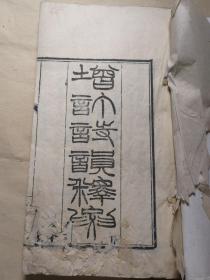 增訂詩韻釋